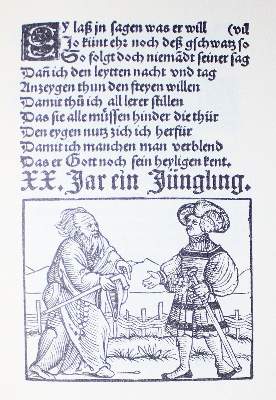 Ey laß in sagen was er will (vil
So künt ehr noch deß gschwatz so
So folgt doch niemādt seiner sag
Dañ ich den leytten nacht vnd tag
Anzeygen thun den freyen willen
Damit thů ich all lerer stillen
Das sie alle můssen hinder die thür
Den eygen nutz zich ich herfür
Damit ich manchen man verblend
Das er Gott noch sein heyligen kent.
XX. Jar ein Jüngling.